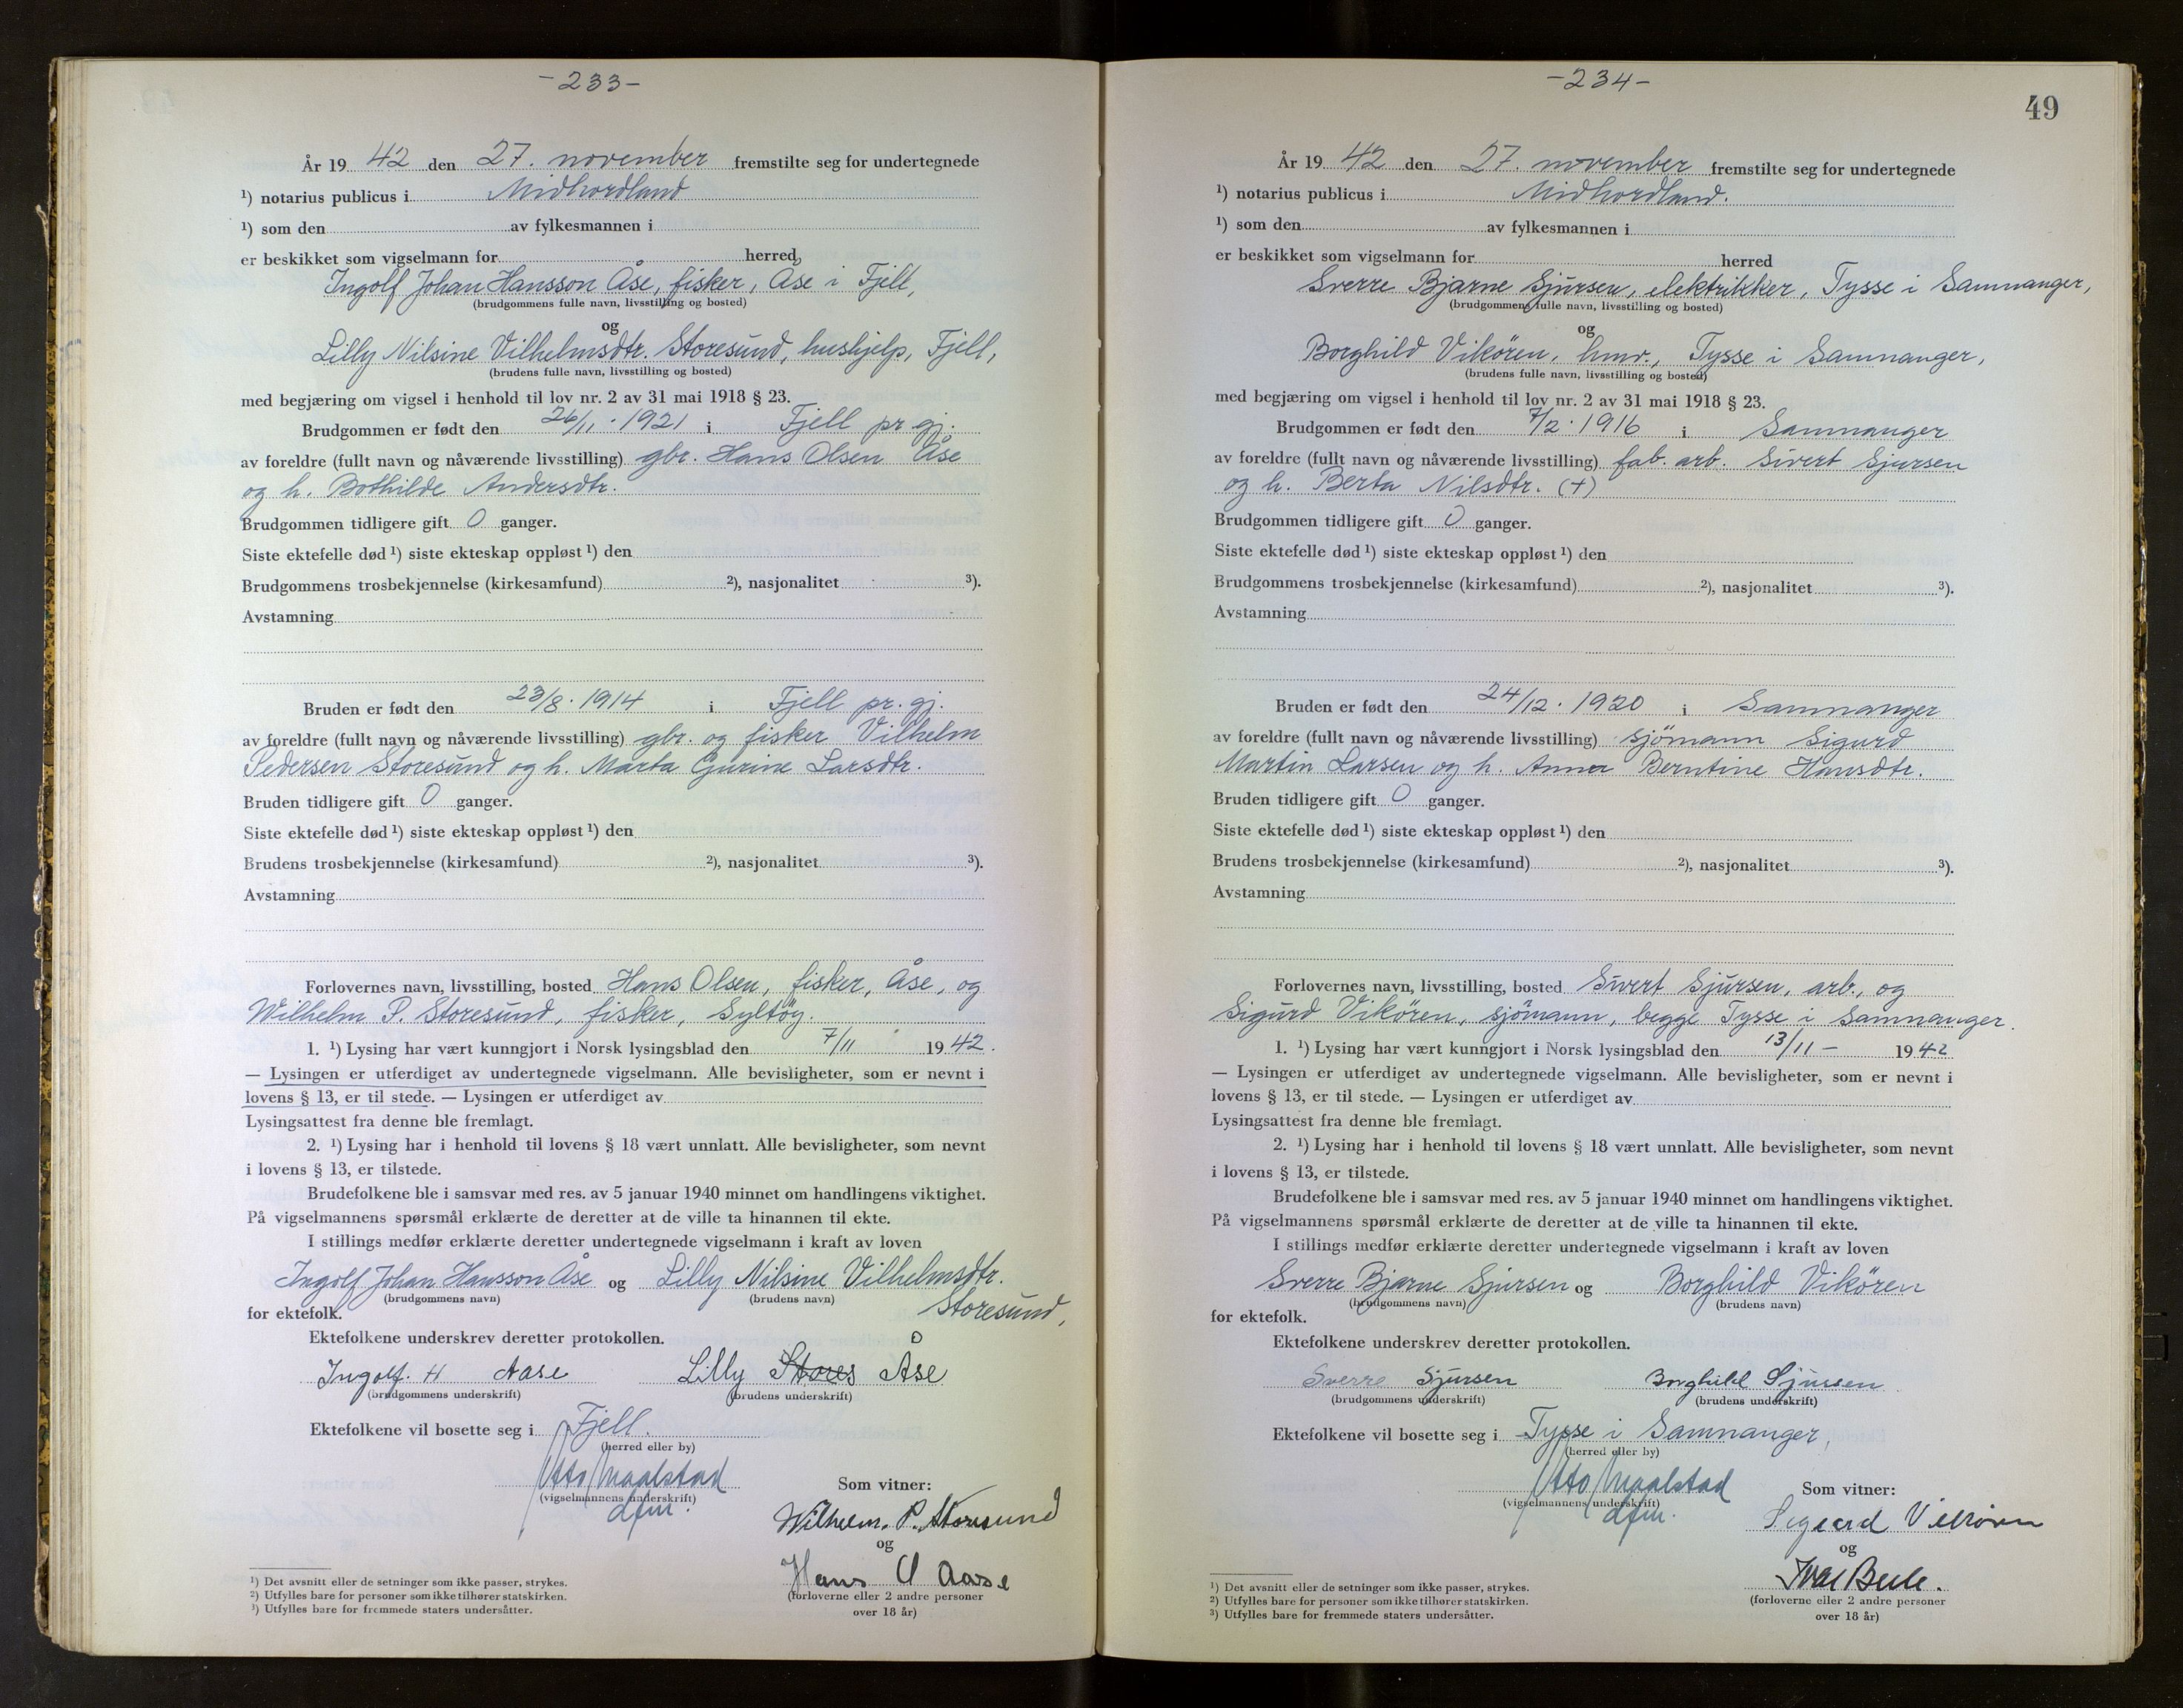 -233-
År 19 42 den 27. november fremstilte seg for undertegnede
¹) notarius publicus i Midhordland
¹) som den av fylkesmannen i
er beskikket som vigselmann for herred,
Ingolf Johan Hansson Åse, fisker, Åse i Fjell,
(brudgommens fulle navn, livsstilling og bosted)
og
Lilly Nilsine Vilhelmsdtr. Storesund, hushjelp, Fjell,
(brudens fulle navn, livsstilling og bosted)
med begjæring om vigsel i henhold til lov nr. 2 av 31 mai 1918 § 23.
Brudgommen er født den 26/11. 1921 i Fjell pr.gj.
av foreldre (fullt navn og nåværende livsstilling) gbr. Hans Olsen Åse
og h. Bothilde Andersdtr.
Brudgommen tidligere gift 0 ganger.
Siste ektefelle død ¹) siste ekteskap oppløst ¹) den
Brudgommens trosbekjennelse (kirkesamfund) ²), nasjonalitet ³).
Avstamning
Bruden er født den 23/8. 1914 i Fjell pr. gj.
av foreldre (fullt navn og nåværende livsstilling) gbr. og fisker Vilhelm
Pedersen Storesund og h. Marta Gurine Larsdtr.
Bruden tidligere gift 0 ganger.
Siste ektefelle død ¹) siste ekteskap oppløst ¹) den
Brudens trosbekjennelse (kirkesamfund) ²), nasjonalitet ³).
Avstamning
Forlovernes navn, livsstilling, bosted Hans Olsen, fisker, Åse, og
Wilhelm P. Storesund, fisker, Syltöy.
1. ¹) Lysing har vært kunngjort i Norsk lysingsblad den 7/11 1942.
— Lysingen er utferdiget av undertegnede vigselmann. Alle bevisligheter, som er nevnt i
lovens § 13, er til stede. — Lysingen er utferdiget av
Lysingsattest fra denne ble fremlagt.
2. ¹) Lysing har i henhold til lovens § 18 vært unnlatt. Alle bevisligheter, som nevnt
i lovens § 13, er tilstede.
Brudefolkene ble i samsvar med res. av 5 januar 1940 minnet om handlingens viktighet.
På vigselmannens spørsmål erklærte de deretter at de ville ta hinannen til ekte.
I stillings medfør erklærte deretter undertegnede vigselmann i kraft av loven
Ingolf Johan Hansson Åse og Lilly Nilsine Vilhelmsdtr.
(brudgommens navn) (brudens navn)
for ektefolk. Storesund,
Ektefolkene underskrev deretter protokollen.
Ingolf. H Aase Lilly Stores Åse
(brudgommens underskrift) (brudens underskrift)
Ektefolkene vil bosette seg i Fjell.
(herred eller by)
Otto Maalstad
(vigselmannens underskrift)
dfm.
Som vitner:
Wilhelm. P. Storesund
og
Hans O Aase
(forloverne eller 2 andre personer
over 18 år)
¹) Det avsnitt eller de setninger som ikke passer, strykes.
²) Utfylles bare for personer som ikke tilhører statskirken.
³) Utfylles bare for fremmede staters undersåtter.
-234-
49
År 19 42 den 27. november fremstilte seg for undertegnede
¹) notarius publicus i Midhordland.
¹) som den av fylkesmannen i
er beskikket som vigselmann for herred
Sverre Bjarne Sjursen, elektrikker, Tysse i Samnanger,
(brudgommens fulle navn, livsstilling og bosted)
og
Borghild Vikören, hmv., Tysse i Samnanger,
(brudens fulle navn, livsstilling og bosted)
med begjæring om vigsel i henhold til lov nr. 2 av 31 mai 1918 § 23.
Brudgommen er født den 7/2. 1916 i Samnanger
av foreldre (fullt navn og nåværende livsstilling) fab. arb. Sivert Sjursen
og h. Berta Nilsdtr. (+)
Brudgommen tidligere gift 0 ganger.
Siste ektefelle død ¹) siste ekteskap oppløst ¹) den
Brudgommens trosbekjennelse (kirkesamfund) ²), nasjonalitet ³).
Avstamning
Bruden er født den 24/12. 1920 i Samnanger
av foreldre (fullt navn og nåværende livsstilling) sjömann Sigurd
Martin Larsen og h. Anna Berntine Hansdtr.
Bruden tidligere gift 0 ganger.
Siste ektefelle død ¹) siste ekteskap oppløst ¹) den
Brudens trosbekjennelse (kirkesamfund) ²), nasjonalitet ³).
Avstamning
Forlovernes navn, livsstilling, bosted Sivert Sjursen, arb., og
Sigurd Vikören, sjömann, begge Tysse i Samnanger.
1. ¹) Lysing har vært kunngjort i Norsk lysingsblad den 13/11 - 1942
— Lysingen er utferdiget av undertegnede vigselmann. Alle bevisligheter, som er nevnt i
lovens § 13, er til stede. — Lysingen er utferdiget av
Lysingsattest fra denne ble fremlagt.
2. ¹) Lysing har i henhold til lovens § 18 vært unnlatt. Alle bevisligheter, som nevnt
i lovens § 13, er tilstede.
Brudefolkene ble i samsvar med res. av 5 januar 1940 minnet om handlingens viktighet.
På vigselmannens spørsmål erklærte de deretter at de ville ta hinannen til ekte.
I stillings medfør erklærte deretter undertegnede vigselmann i kraft av loven
Sverre Bjarne Sjursen og Borghild Vikören
(brudgommens navn) (brudens navn)
for ektefolk.
Ektefolkene underskrev deretter protokollen.
Sverre Sjursen Borghild Sjursen
(brudgommens underskrift) (brudens underskrift)
Ektefolkene vil bosette seg i Tysse i Samnanger,
(herred eller by)
Otto Maalstad
(vigselmannens underskrift)
dfm.
Som vitner:
Sigurd Vikören
og
(forloverne eller 2 andre personer
over 18 år)
¹) Det avsnitt eller de setninger som ikke passer, strykes.
²) Utfylles bare for personer som ikke tilhører statskirken.
³) Utfylles bare for fremmede staters undersåtter.